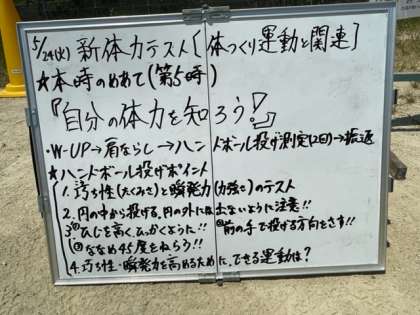 5/24(火) 新体力テスト[体つくり運動と関連]
★本時のめあて(第5時)
『自分の体力を知ろう!』
・W-UP→肩ならし→ハンドボール投げ測定(2回)→振返
★ハンドボール投げポイント
1. 巧ち性(たくみさ)と瞬発力(力強さ)のテスト
2. 円の中から投げる, 円の外には出ないように注意!!
3 ①ひじを高く、ひっかくように!! ②前の手で投げる方向をさす!!
③ななめ45度をねらう!!
4. 巧ち性・瞬発力を高めるために、できる運動は?